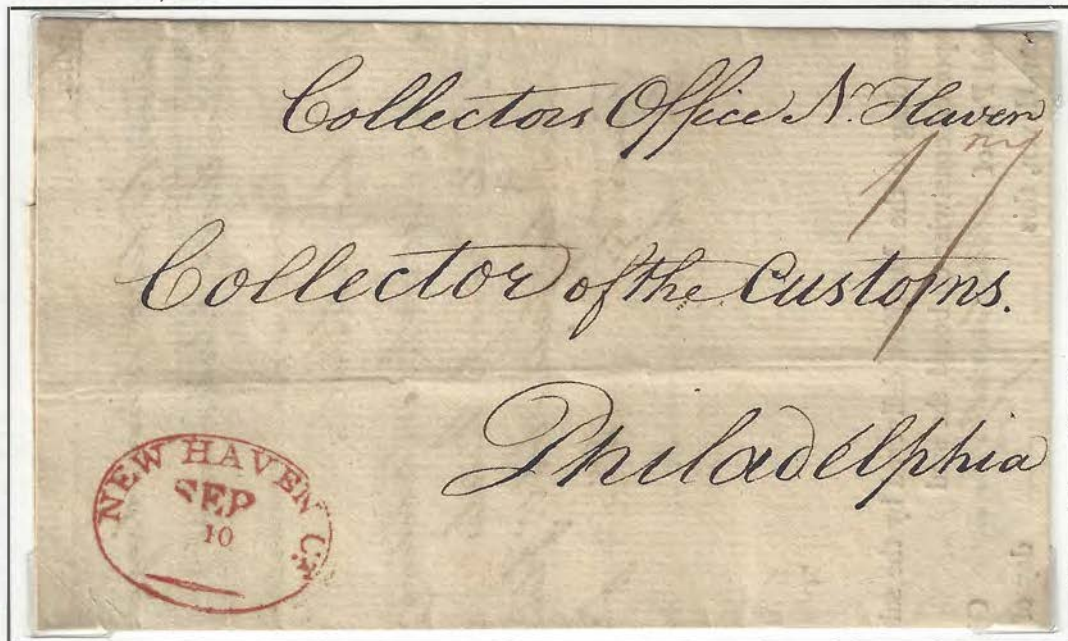 Collectors Office N. Haven
17
Collector of the Customs.
Philadelphia
NEW HAVEN Ct.
SEP
10